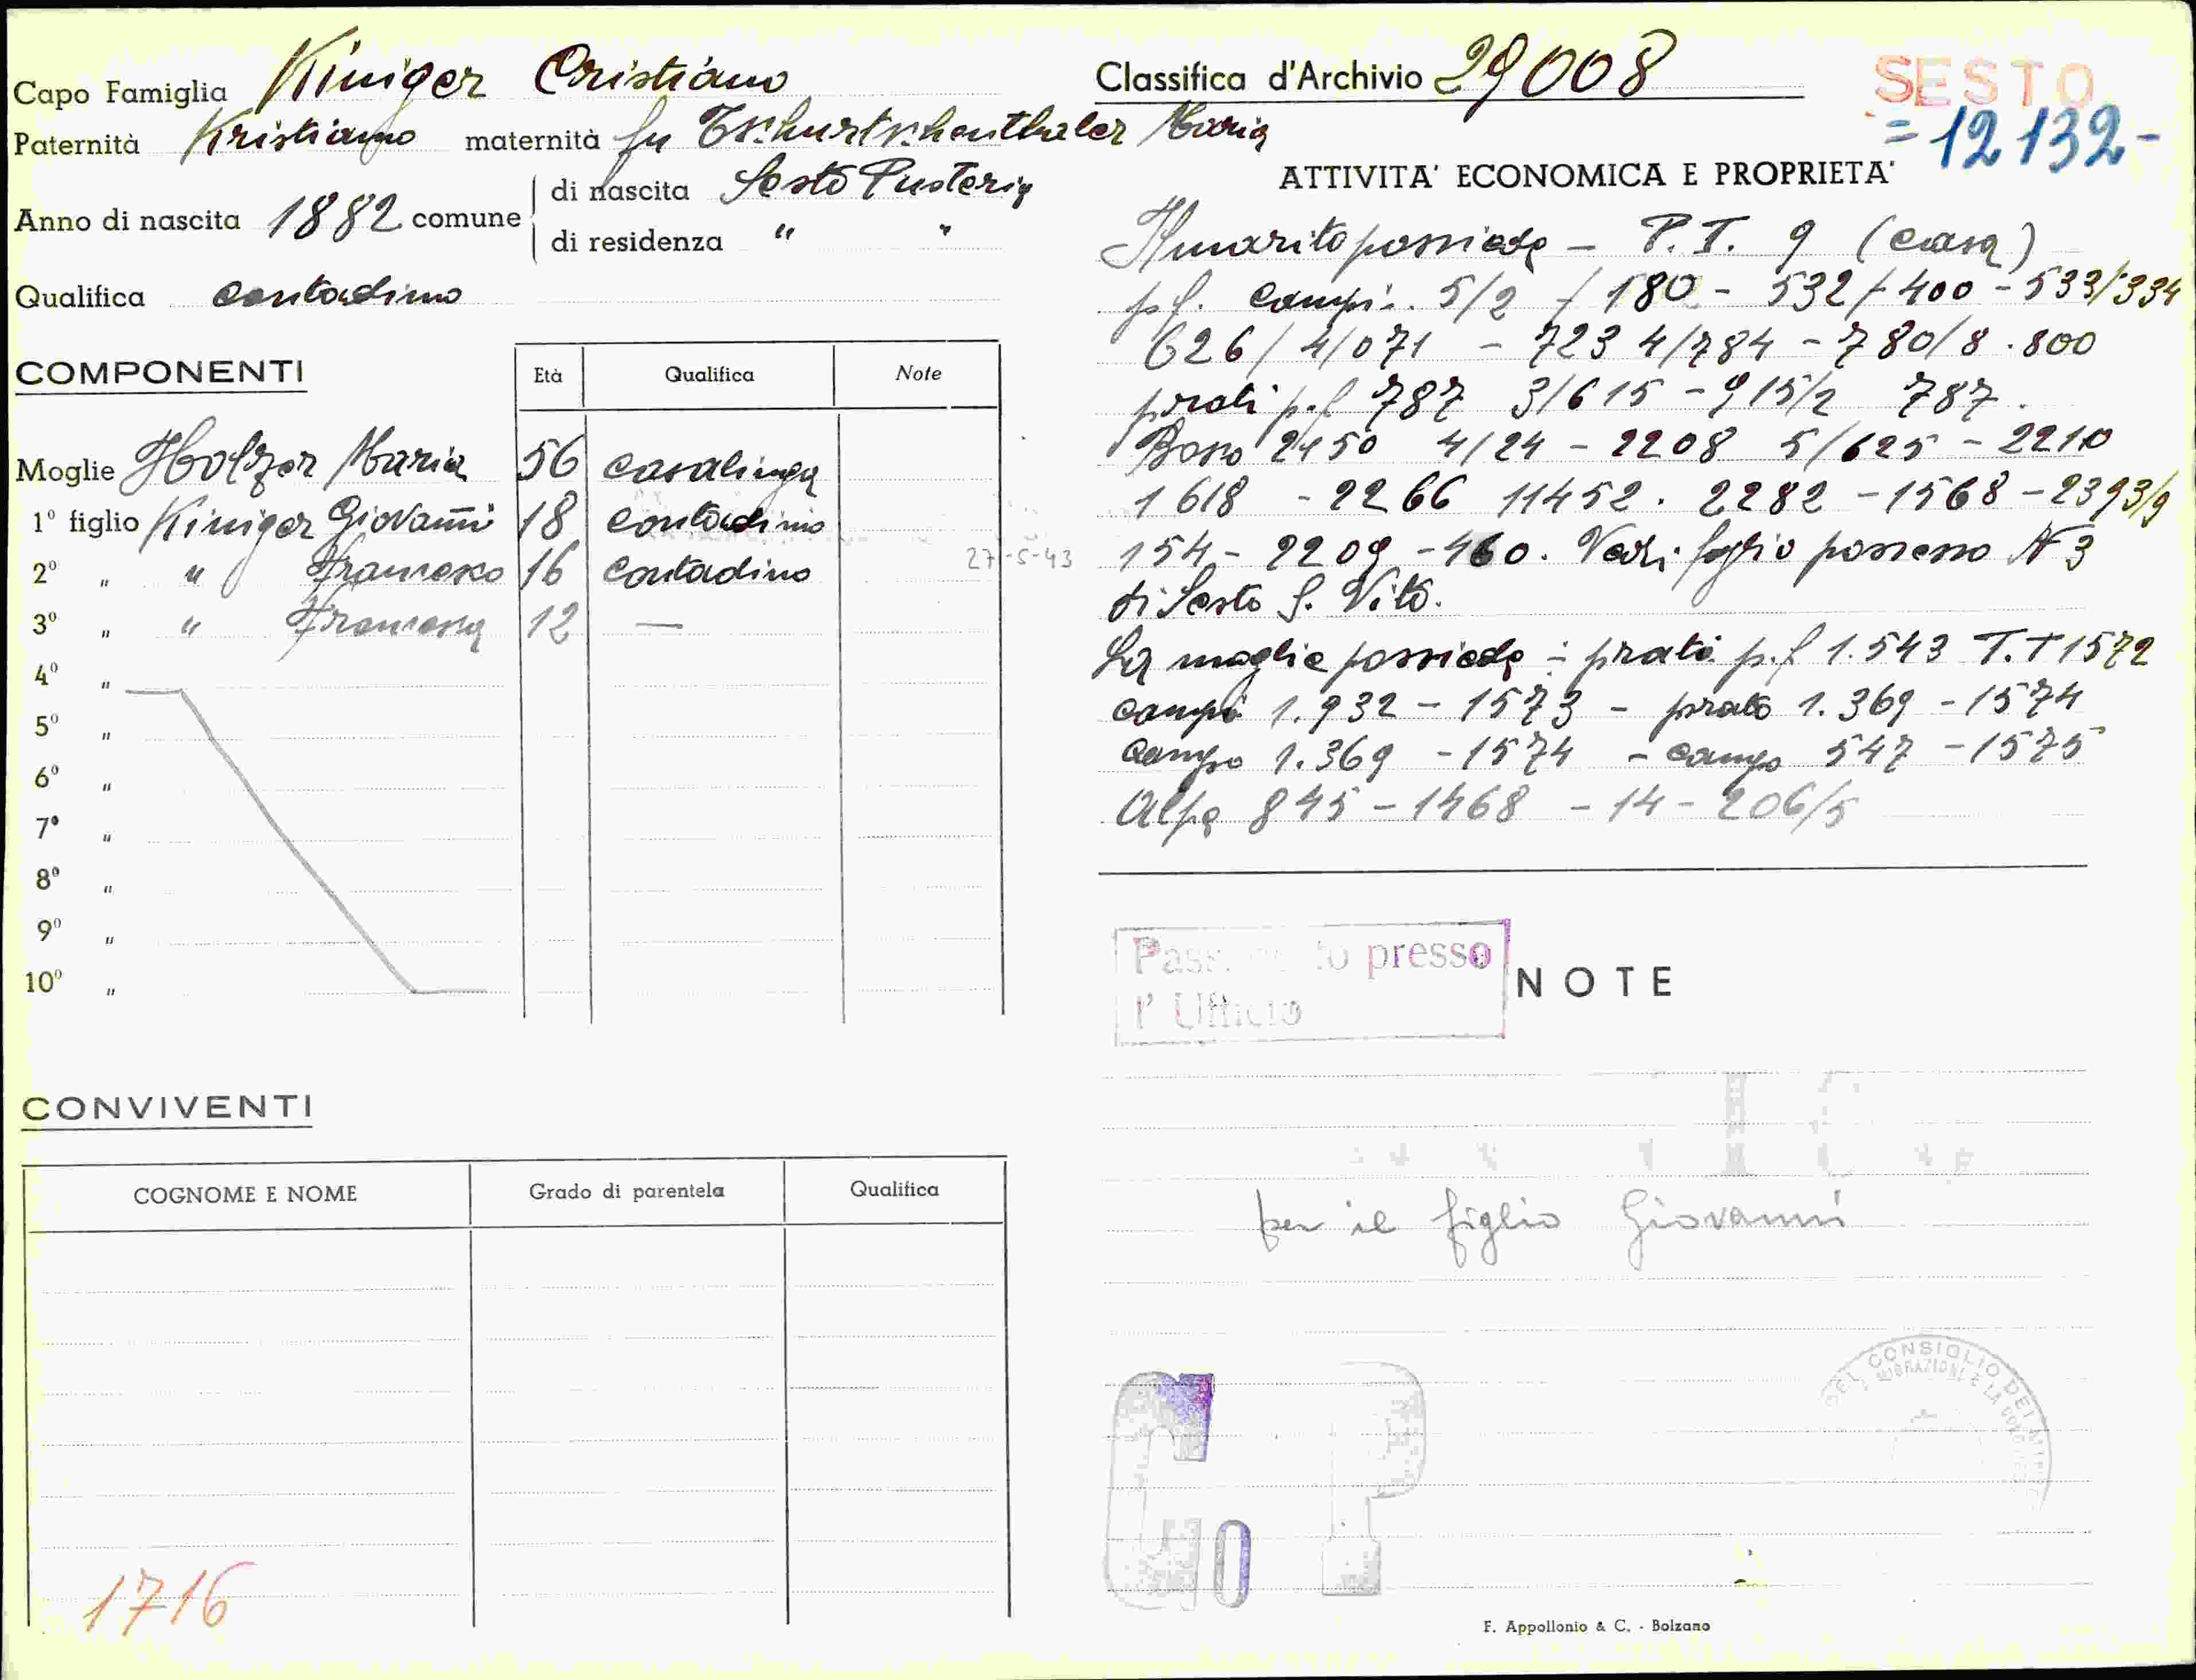 Capo Famiglia Kiniger Cristiano
Paternità Kristiano maternità fu Tschurtschenthaler Maria
Anno di nascita 1882 comune di nascita Sesto Pusteria
di residenza " "
Qualifica contadino
COMPONENTI
Età Qualifica Note
Moglie Holzer Maria 56 casalinga
1° figlio Kiniger Giovanni 18 contadino
2° " " Francesco 16 contadino
27-5-43
3° " " Francesca 12 —
4° "
5° "
6° "
7° "
8° "
9° "
10° "
CONVIVENTI
COGNOME E NOME Grado di parentela Qualifica
1716
Classifica d'Archivio 29008
SESTO
=12132-
ATTIVITA' ECONOMICA E PROPRIETA'
Il marito possiede – P.T. 9 (casa)
p.f. campi: 5/2 / 180 - 532/400 - 533/334
626/4/071 - 723 4/784 - 780/8.800
prati p.f 787 3/615 - 915/2 787.
Bosco 2450 4/24 - 2208 5/625 - 2210
1618 - 2266 11452. 2282 - 1568 - 2393/9
154 - 2209 - 460. Vedi foglio possesso N 3
di Sesto S. Vito.
La moglie possiede: prato p.f 1.543 T.T 1572
campo 1.932 - 1573 - prato 1.369 - 1574
campo 1.369 - 1574 - campo 547 - 1575
Alpe 845 - 1468 - 14 - 206/5
presso
l' Ufficio
NOTE
per il figlio Giovanni
G P
10
DEL CONSIGLIO DEI
MIGRAZIONI E LA
F. Appollonio & C. - Bolzano